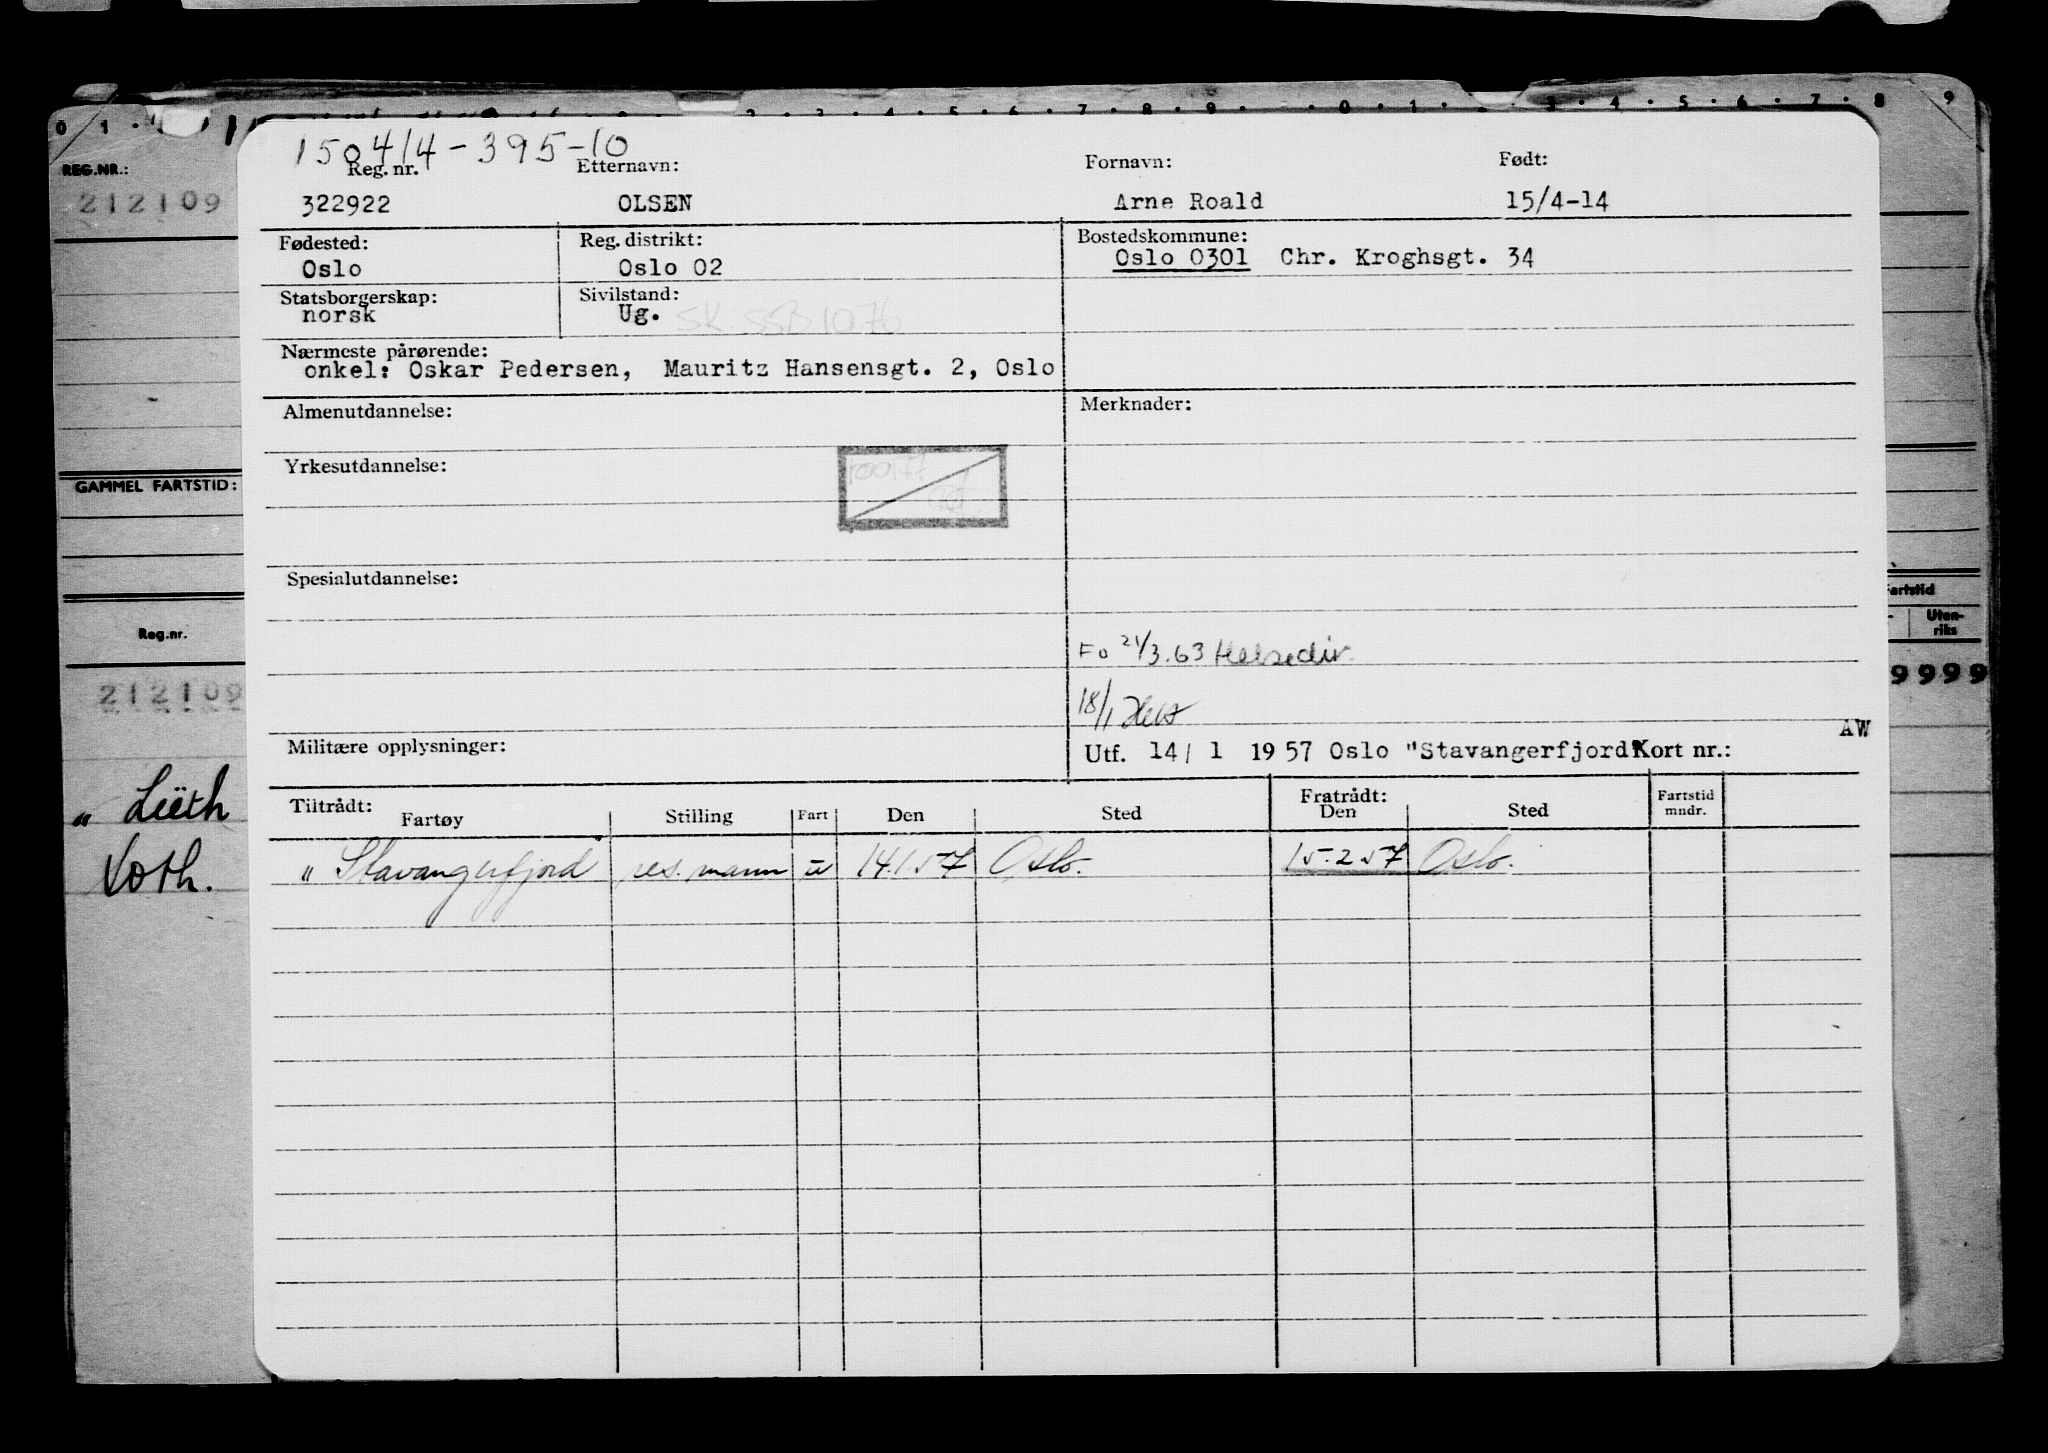 0 1 2 3 4 5 6 7 8 9 0 1 2 3 4 5 6 7 8 9
150414-395-10
Reg. nr. Etternavn: Fornavn: Født:
322922 OLSEN Arne Roald 15/4-14
Fødested: Reg. distrikt: Bostedskommune:
Oslo Oslo 02 Oslo 0301 Chr. Kroghsgt. 34
Statsborgerskap: Sivilstand:
norsk Ug.
Nærmeste pårørende:
onkel: Oskar Pedersen, Mauritz Hansensgt. 2, Oslo
Almenutdannelse: Merknader:
Yrkesutdannelse:
Spesialutdannelse:
Fo 21/3.63 Helsedir.
18/1
AW
Militære opplysninger: Utf. 14/ 1 1957 Oslo "Stavangerfjord" Kort nr.:
Tiltrådt: Fratrådt: Fartstid
Fartøy Stilling Fart Den Sted Den Sted mndr.
" Stavangerfjord res. mann u 14.1.57 Oslo. 15.2.57 Oslo.
REG.NR.:
212109
GAMMEL FARTSTID:
Reg.nr.
212109
" Lüth
Voth.
artstid
Uten-
riks
9999